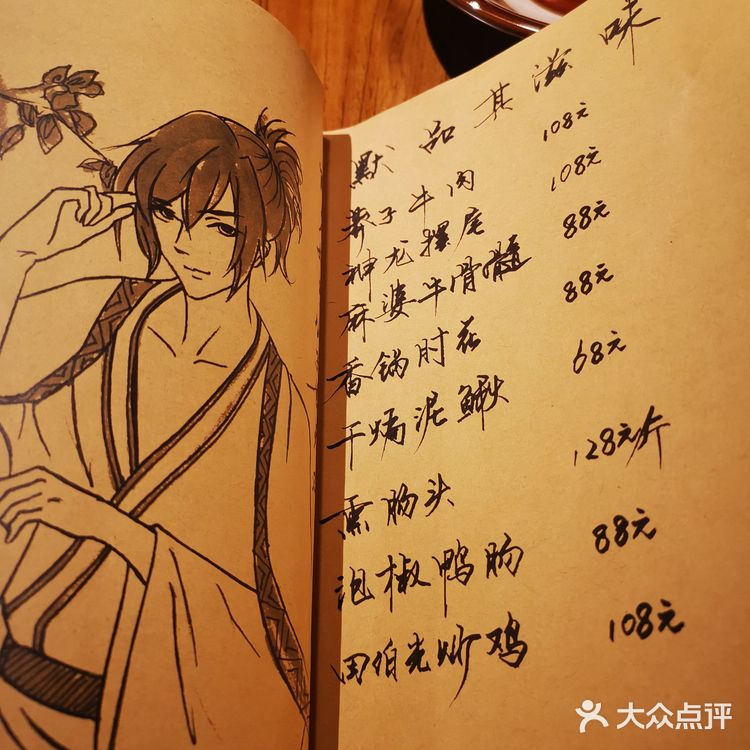 默品其滋味
子牛肉 108元
神龙摆尾 108元
麻婆牛骨髓 88元
香锅肘花 88元
干煸泥鳅 68元
熏肠头 128元/斤
泡椒鸭肠 88元
田伯光炒鸡 108元
大众点评